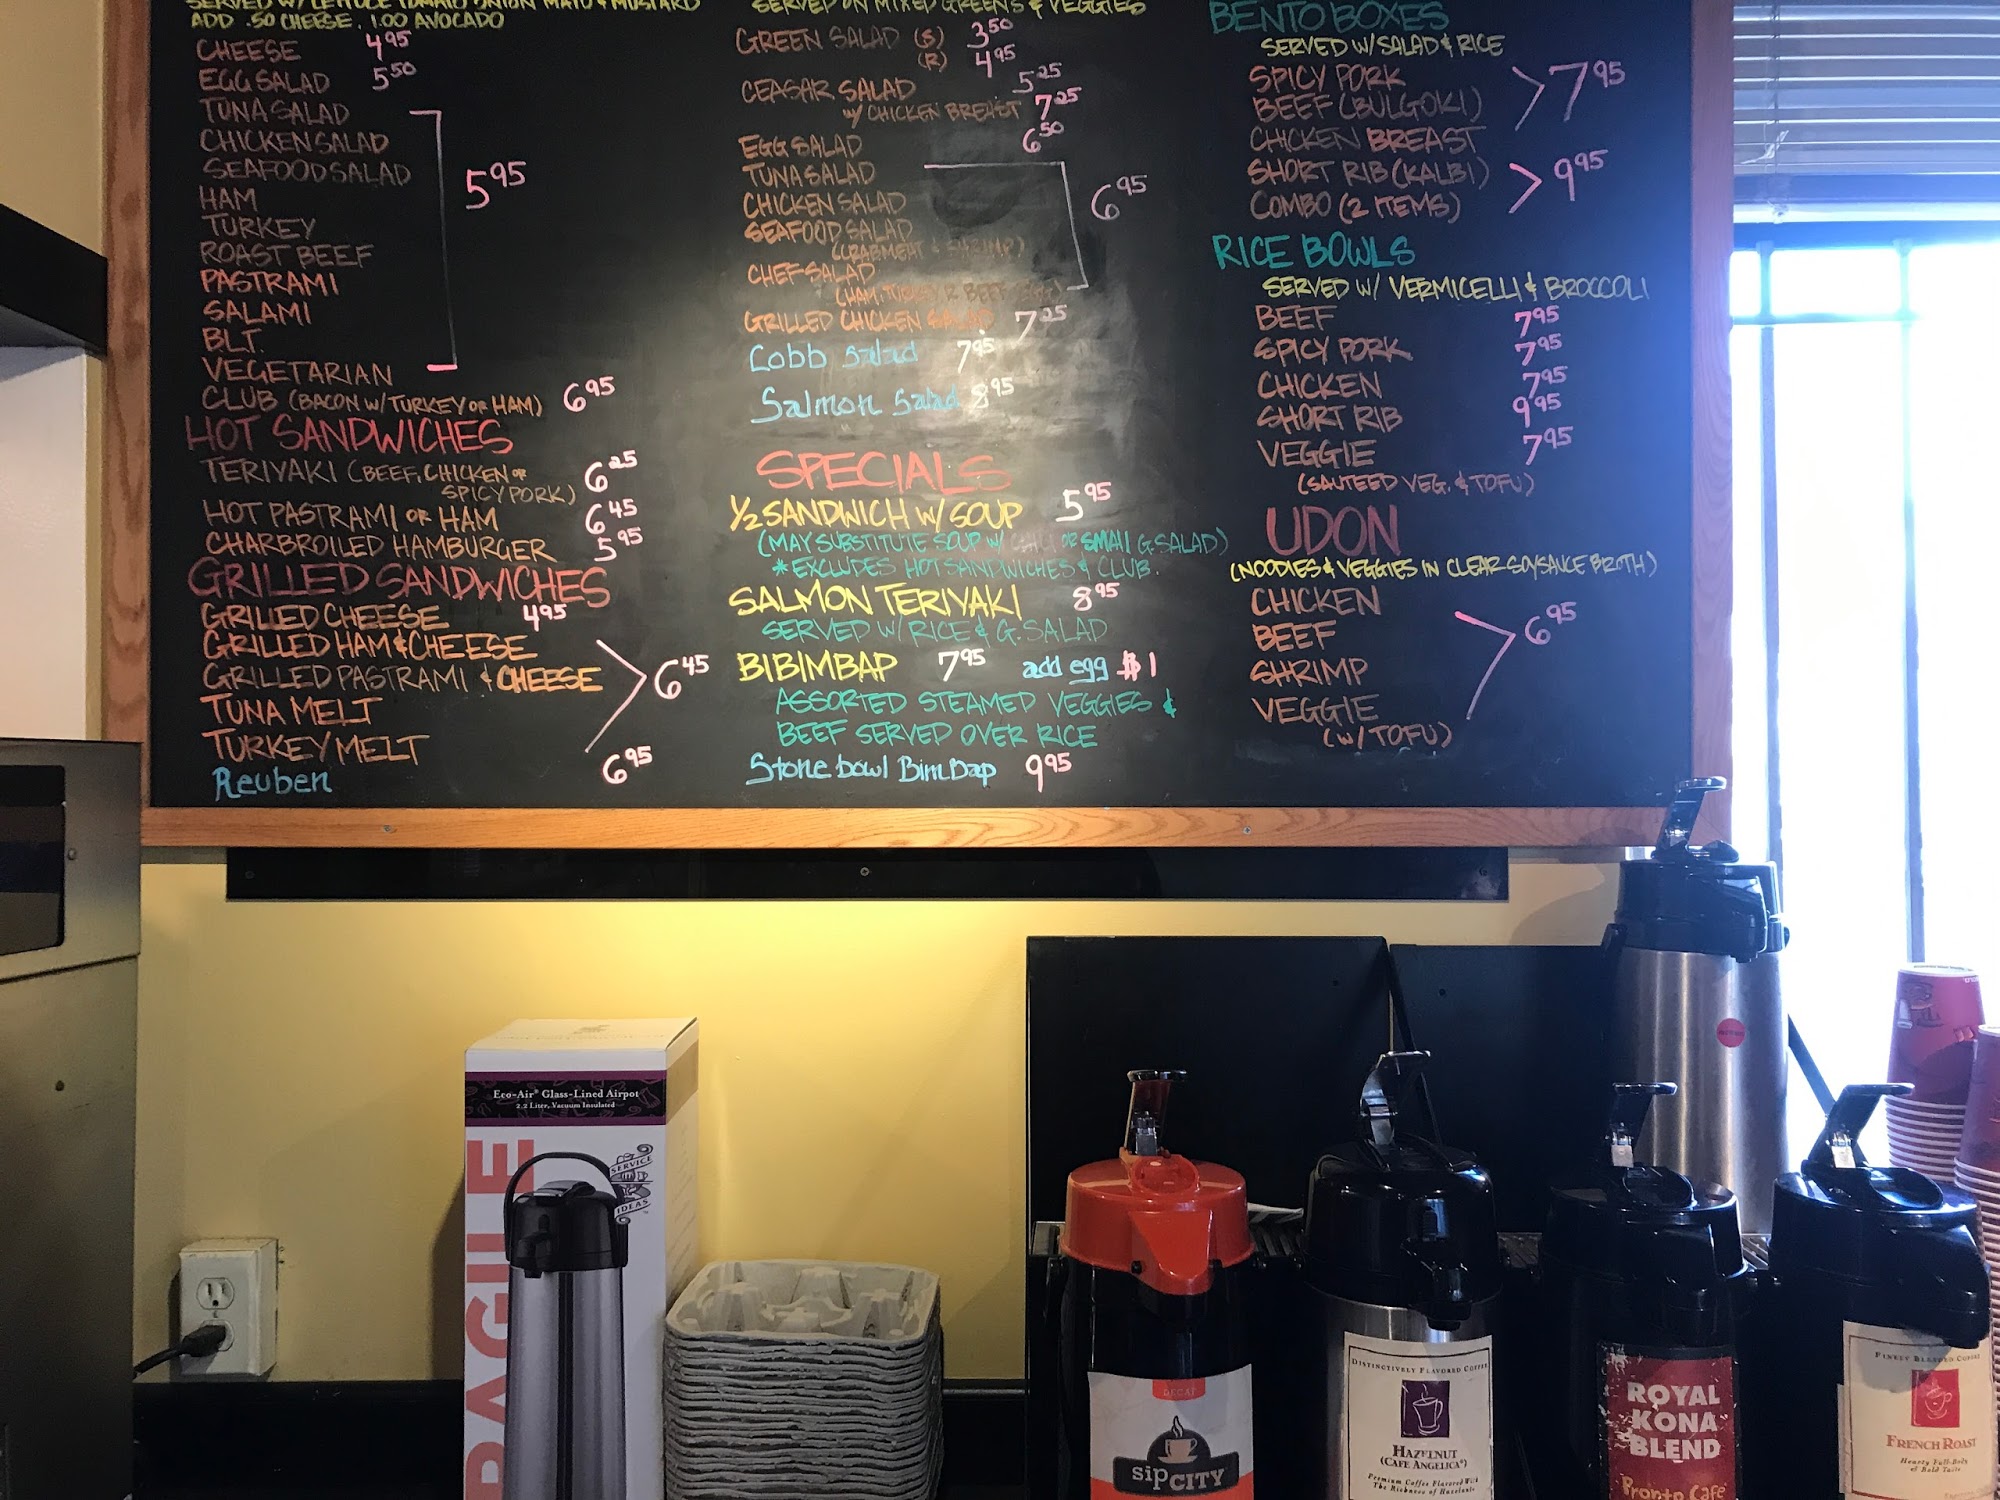 SERVED W/ LETTUCE TOMATO ONION MAYO & MUSTARD
ADD .50 CHEESE, 1.00 AVOCADO
CHEESE 4.95
EGG SALAD 5.50
TUNA SALAD
CHICKEN SALAD
SEAFOOD SALAD
HAM
TURKEY
ROAST BEEF
PASTRAMI
SALAMI
BLT.
VEGETARIAN
5.95
CLUB (BACON W/ TURKEY OR HAM) 6.95
HOT SANDWICHES
TERIYAKI (BEEF, CHICKEN OR
SPICY PORK) 6.25
HOT PASTRAMI OR HAM 6.45
CHARBROILED HAMBURGER 5.95
GRILLED SANDWICHES
GRILLED CHEESE 4.95
GRILLED HAM & CHEESE
GRILLED PASTRAMI & CHEESE
TUNA MELT
TURKEY MELT
6.45
Reuben 6.95
SERVED ON MIXED GREENS & VEGGIES
GREEN SALAD (S) 3.50
(R) 4.95
CEASAR SALAD 5.25
W/ CHICKEN BREAST 7.25
EGG SALAD 6.50
TUNA SALAD
CHICKEN SALAD
SEAFOOD SALAD
(CRABMEAT & SHRIMP)
CHEF SALAD
(HAM, TURKEY, R BEEF
6.95
GRILLED CHICKEN SALAD 7.25
Cobb Salad 7.95
Salmon Salad 8.95
SPECIALS
1/2 SANDWICH W/ SOUP 5.95
(MAY SUBSTITUTE SOUP W/ OR SMALL G. SALAD)
* EXCLUDES HOT SANDWICHES & CLUB.
SALMON TERIYAKI 8.95
SERVED W/ RICE & G. SALAD
BIBIMBAP 7.95 add egg $1
ASSORTED STEAMED VEGGIES &
BEEF SERVED OVER RICE
Stone bowl BimBap 9.95
BENTO BOXES
SERVED W/ SALAD & RICE
SPICY PORK
BEEF (BULGOKI)
CHICKEN BREAST
7.95
SHORT RIB (KALBI)
COMBO (2 ITEMS)
9.95
RICE BOWLS
SERVED W/ VERMICELLI & BROCCOLI
BEEF 7.95
SPICY PORK 7.95
CHICKEN 7.95
SHORT RIB 9.95
VEGGIE 7.95
(SAUTEED VEG. & TOFU)
UDON
(NOODLES & VEGGIES IN CLEAR SOYSAUCE BROTH)
CHICKEN
BEEF
SHRIMP
VEGGIE
(W/ TOFU)
6.95
Eco-Air® Glass-Lined Airpot
2.2 Liter, Vacuum Insulated
SERVICE
IDEAS
FRAGILE
DECAF
sipCITY
DISTINCTIVELY FLAVORED COFFEE
HAZELNUT
(CAFE ANGELICA®)
Premium Coffee Flavored With
The Richness of Hazelnuts
ROYAL
KONA
BLEND
Pronto Café
FINELY BLENDED COFFEE
FRENCH ROAST
Hearty Full-Body
& Bold Taste